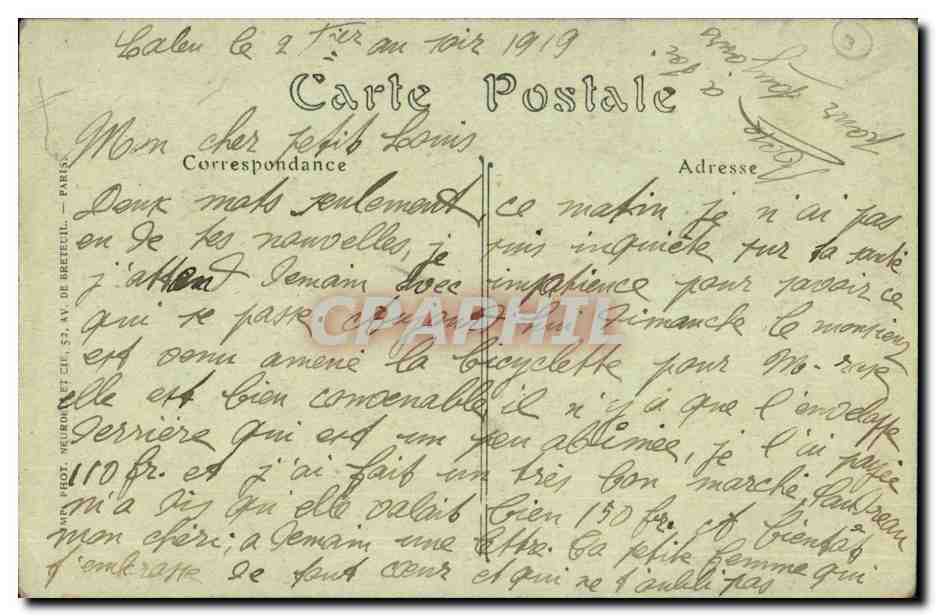 le 2 fer au soir 1919
Carte Postale
Mon cher petit Louis
Correspondance
Adresse
Deux mots seulement, ce matin je n'ai pas
eu de tes nouvelles, je suis inquiete sur ta santé
j'attend demain avec impatience pour savoir ce
qui se passe. Aujourd'hui Dimanche le monsieur
est venu amené la bicyclette pour
elle est bien convenable, il n'y a que l'enveloppe
derrière qui est un peu abîmée, je l'ai payée
110 fr. et j'ai fait un très bon marché,
m'a dis qu'elle valait bien 150 fr. A bientôt
mon chéri, a demain une lettre. Ta petite femme qui
t'embrasse de tout cœur et qui ne t'oubli pas
IMP. PHOT. NEURDEIN ET CIE, 52, AV. DE BRETEUIL. — PARIS.
CPAPHIL